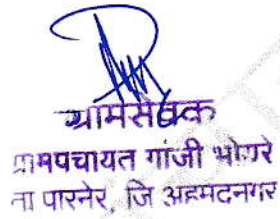 ग्रामसेवक
ग्रामपंचायत गांजी भोयरे
ता पारनेर, जि अहमदनगर